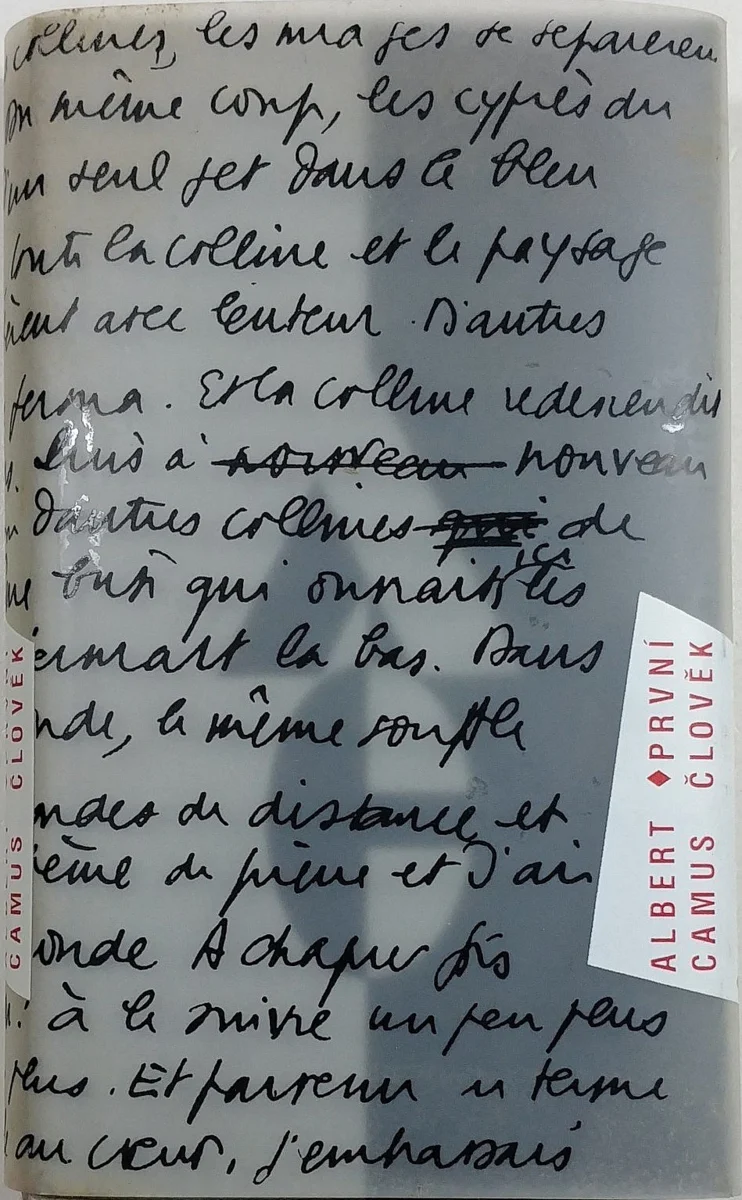 collines, les nuages se séparèrent
même coup, les cyprès du
un seul jet dans le bleu
la colline et le paysage
avec lenteur. D'autres
ferma. Et la colline redescendit
Puis à nouveau nouveau
d'autres collines qui de
qui ici
la bas. Dans
le même souffle
de distance et
de pierre et d'air
A chaque fois
à le suivre un peu plus
plus. Et parvenu au terme
au cœur, j'embrassais
ALBERT ♦ PRVNÍ
CAMUS ČLOVĚK
CAMUS ČLOVĚK